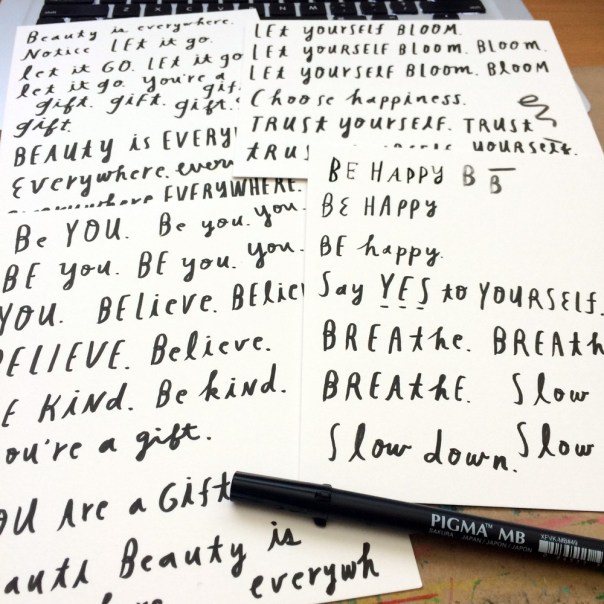 Beauty is everywhere.
Notice LEt it go.
let it GO. LEt it go
let it go. you're a
gift. gift. gift.
gift.
BEAUty is EVERY
Everywhere. every
everywhere EVERYWHERE.
LEt yourself BLOOM.
LEt yoURSELF BLOOM. Bloom.
LEt yourSELF Bloom. BlooM
Choose happiness.
TRUSt yourself. TRUSt
tRUS yoURSElf.
BE HAPPY B B
BE HAPPY
BE happy.
Say YES to YOURSELF.
BREAthe. BREAth
BREAthE. Slow
Slow down. Slow
Be YOU. Be you. you.
BE you. BE you. you.
YOU. BElieve. BElie
BELIEVE. Believe.
E KiND. Be kind.
ou're a gift.
OU Are a Gift
Beauty is
everywh
PIGMA™ MB
SAKURA JAPAN / JAPON / JAPÓN